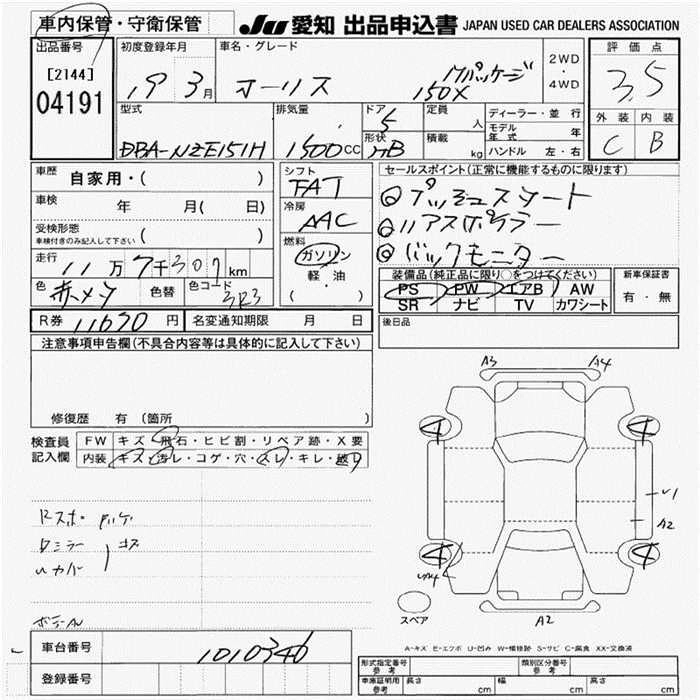 車内保管・守衛保管 JU 愛知 出品申込書 JAPAN USED CAR DEALERS ASSOCIATION
出品番号 初度登録年月 車名・グレード 2WD・4WD 評価点
[2144] 19 3月 オーリス 150X Mパッケージ 3.5
04191
型式 排気量 ドア 5 定員 人 ディーラー・並行 外装 内装
DBA-NZE151H 1500cc 形状 HB 積載 kg モデル年式 年 C B
ハンドル 左・右
車歴 自家用・( ) シフト FAT セールスポイント(正常に機能するものに限ります)
車検 年 月( 日) 冷房 AAC ◎プッシュスタート
受検形態 車検付きのみ記入して下さい ( ) ◎リアスポイラー
走行 11万7千307km 燃料 ガソリン ◎バックモニター
色 赤メタ 色替 色コード 3R3 軽・油 ( )
装備品(純正品に限り○をつけてください) 新車保証書
PS PW エアB AW 有・無
SR ナビ TV カワシート
R券 11630円 名変通知期限 月 日 後日品
注意事項申告欄(不具合内容等は具体的に記入して下さい)
修復歴 有(箇所
検査員記入欄 FW キズ・飛石・ヒビ割・リペア跡・X要
内装 キズ・汚レ・コゲ・穴・スレ・キレ・破レ
A3 A4
4 4
U1
A2
4 4
スペア A2
ミラー コス
カバー
A-キズ E-エクボ U-凹み W-補修跡 S-サビ C-腐食 XX-交換済
車台番号 1010346
登録番号
形式指定番号 参考 類別区分番号 参考
車庫証明用 参考 長さ cm 幅 cm 高さ cm